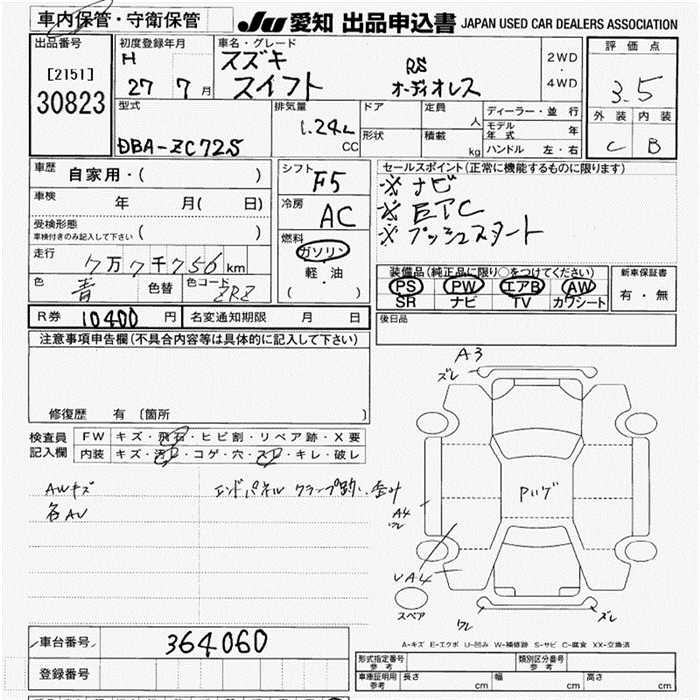 車内保管・守衛保管
JU 愛知 出品申込書 JAPAN USED CAR DEALERS ASSOCIATION
出品番号
[2151]
30823
初度登録年月
H 27 7月
車名・グレード
スズキ
スイフト
RS
オーディオレス
2WD
・
4WD
評価点
3.5
外装 内装
C B
型式
DBA-ZC72S
排気量
1.24L
CC
ドア
形状
定員
人
積載
kg
ディーラー・並行
モデル年式 年
ハンドル 左・右
車歴 自家用・( )
車検 年 月( 日)
受検形態
車検付きのみ記入して下さい ( )
走行 7万7千756km
色 青 色替 色コード ZRZ
シフト F5
冷房 AC
燃料
ガソリン
軽・油
( )
セールスポイント(正常に機能するものに限ります)
※ナビ
※
※プッシュスタート
装備品(純正品に限り○をつけてください)
PS PW エアB AW
SR ナビ TV カワシート
新車保証書
有・無
R券 10400円 名変通知期限 月 日
後日品
注意事項申告欄(不具合内容等は具体的に記入して下さい)
修復歴 有 〔箇所
検査員
記入欄
FW キズ・飛石・ヒビ割・リペア跡・X要
内装 キズ・汚レ・コゲ・穴・スレ・キレ・破レ
AWキズ
各AU
エンドパネル クランプ跡、歪み
A3
ズレ
Pいげ
A4
ワレ
UA4
スペア
ワレ
ズレ
A-キズ E-エクボ U-凹み W-補修跡 S-サビ C-腐食 XX-交換済
車台番号 364060
登録番号
形式指定番号
参考
類別区分番号
参考
車庫証明用
参考
長さ cm 幅 cm 高さ cm